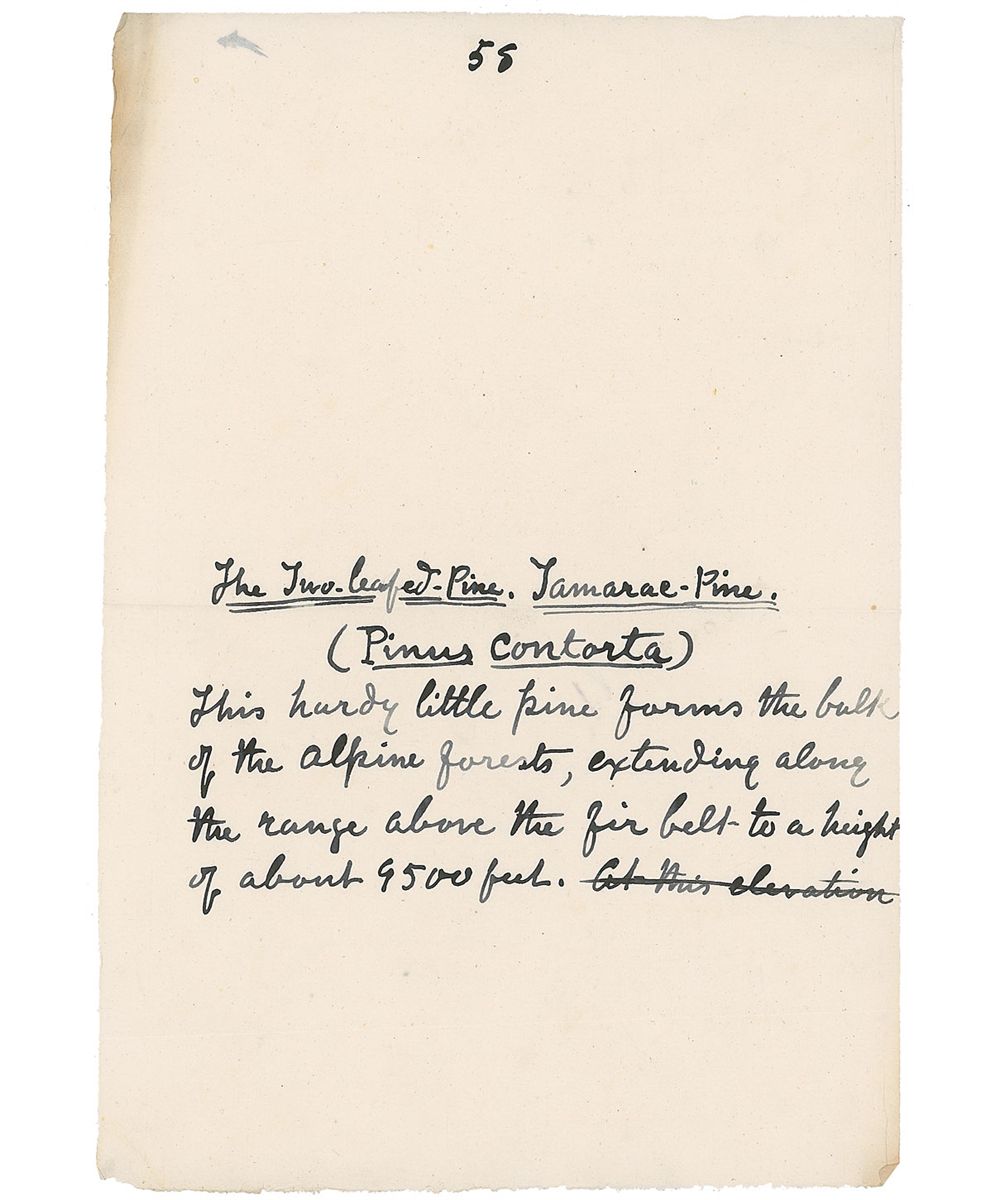 58
The Two-leafed-Pine. Tamarac-Pine.
(Pinus Contorta)
This hardy little pine forms the bulk
of the alpine forests, extending along
the range above the fir belt to a height
of about 9500 feet. At this elevation